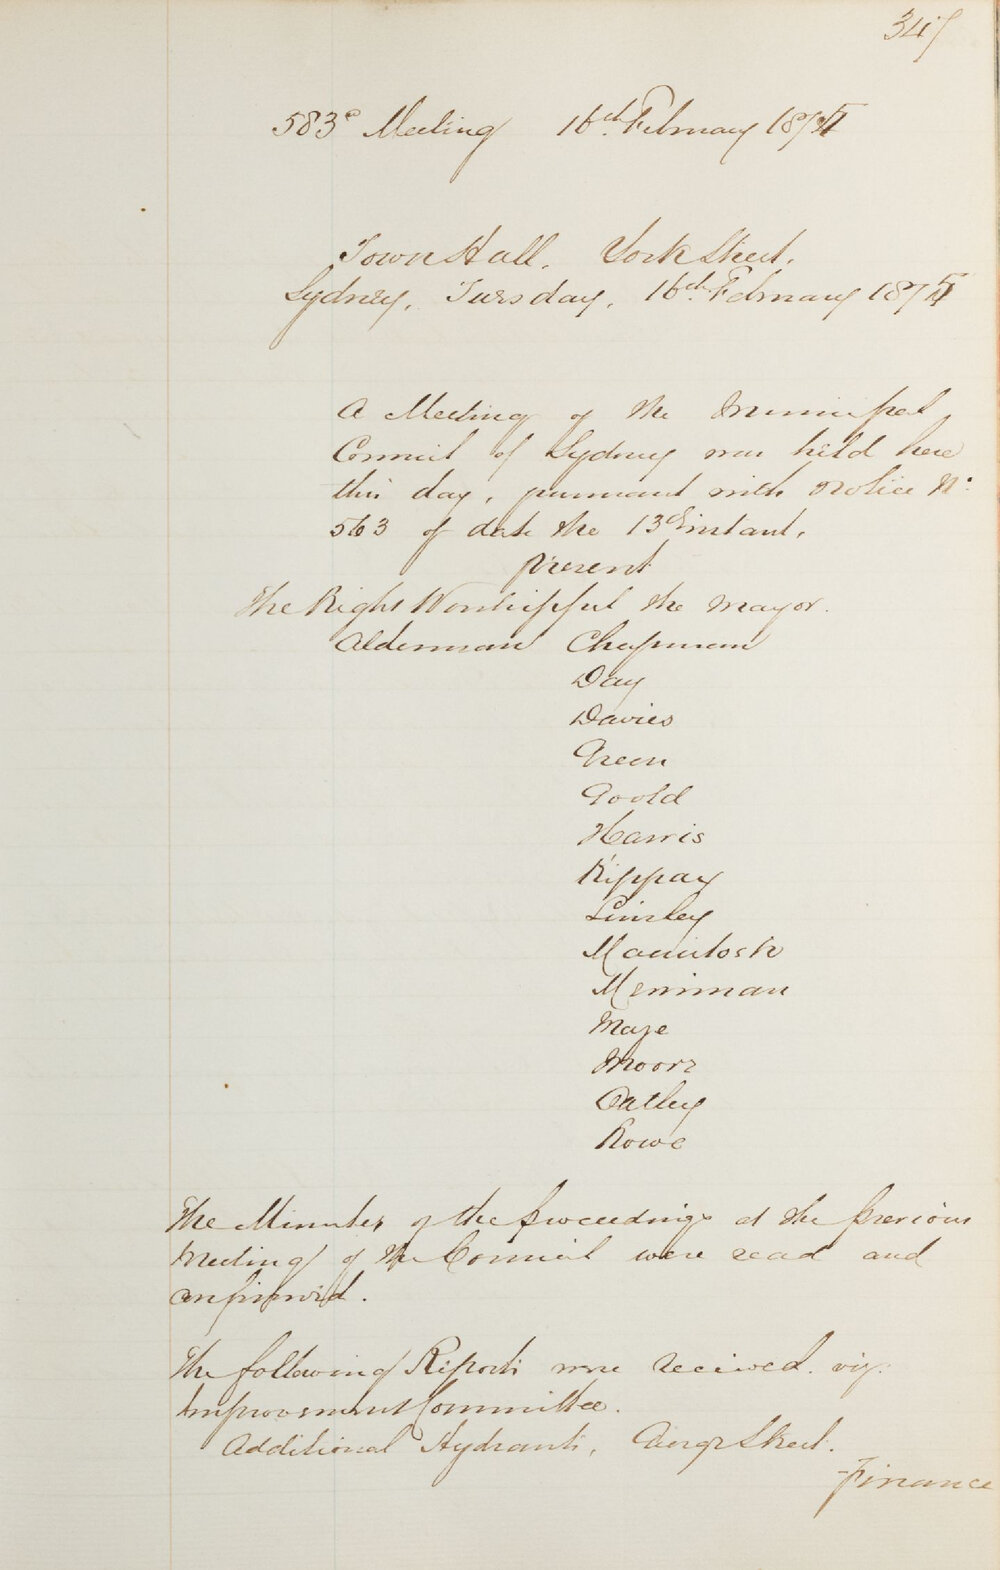 347
583d Meeting 16th February 1875
Town Hall, York Street,
Sydney, Tuesday, 16th February 1875
A Meeting of the Municipal
Council of Sydney was held here
this day, pursuant with Notice No.
563 of date the 13th instant.
Present
The Right Worshipful the Mayor.
Alderman Chapman
Day
Davies
Green
Goold
Harris
Kippax
Linsley
Macintosh
Merriman
Maze
Moore
Oatley
Rowe
The Minutes of the proceedings at the previous
Meeting of the Council were read and
confirmed.
The following Reports were received. viz.
Improvement Committee.
Additional Hydrants, George Street.
Finance